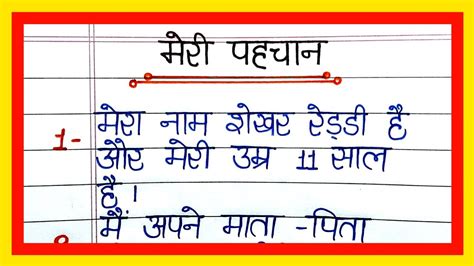 मेरी पहचान
1- मेरा नाम शेखर रेड्डी है
और मेरी उम्र 11 साल
है।
मैं अपने माता -पिता